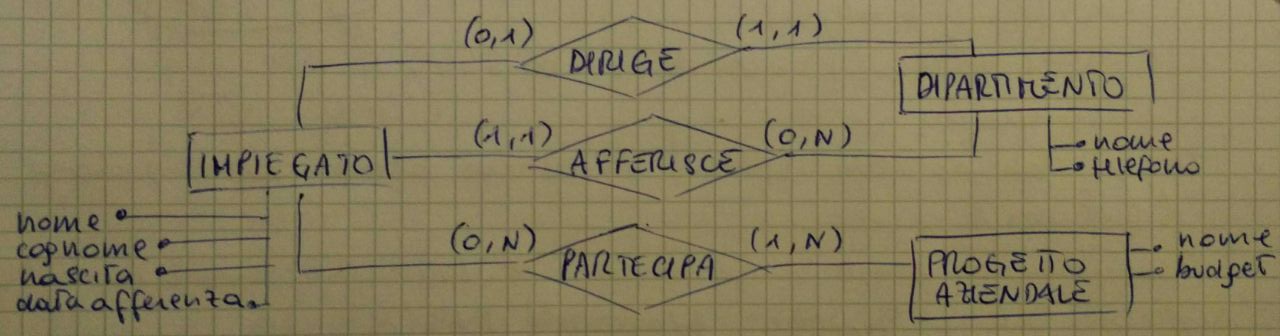 (0,1)
DIRIGE
(1,1)
DIPARTIMENTO
nome
telefono
IMPIEGATO
(1,1)
AFFERISCE
(0,N)
nome
cognome
nascita
data afferenza
(0,N)
PARTECIPA
(1,N)
PROGETTO
AZIENDALE
nome
budget